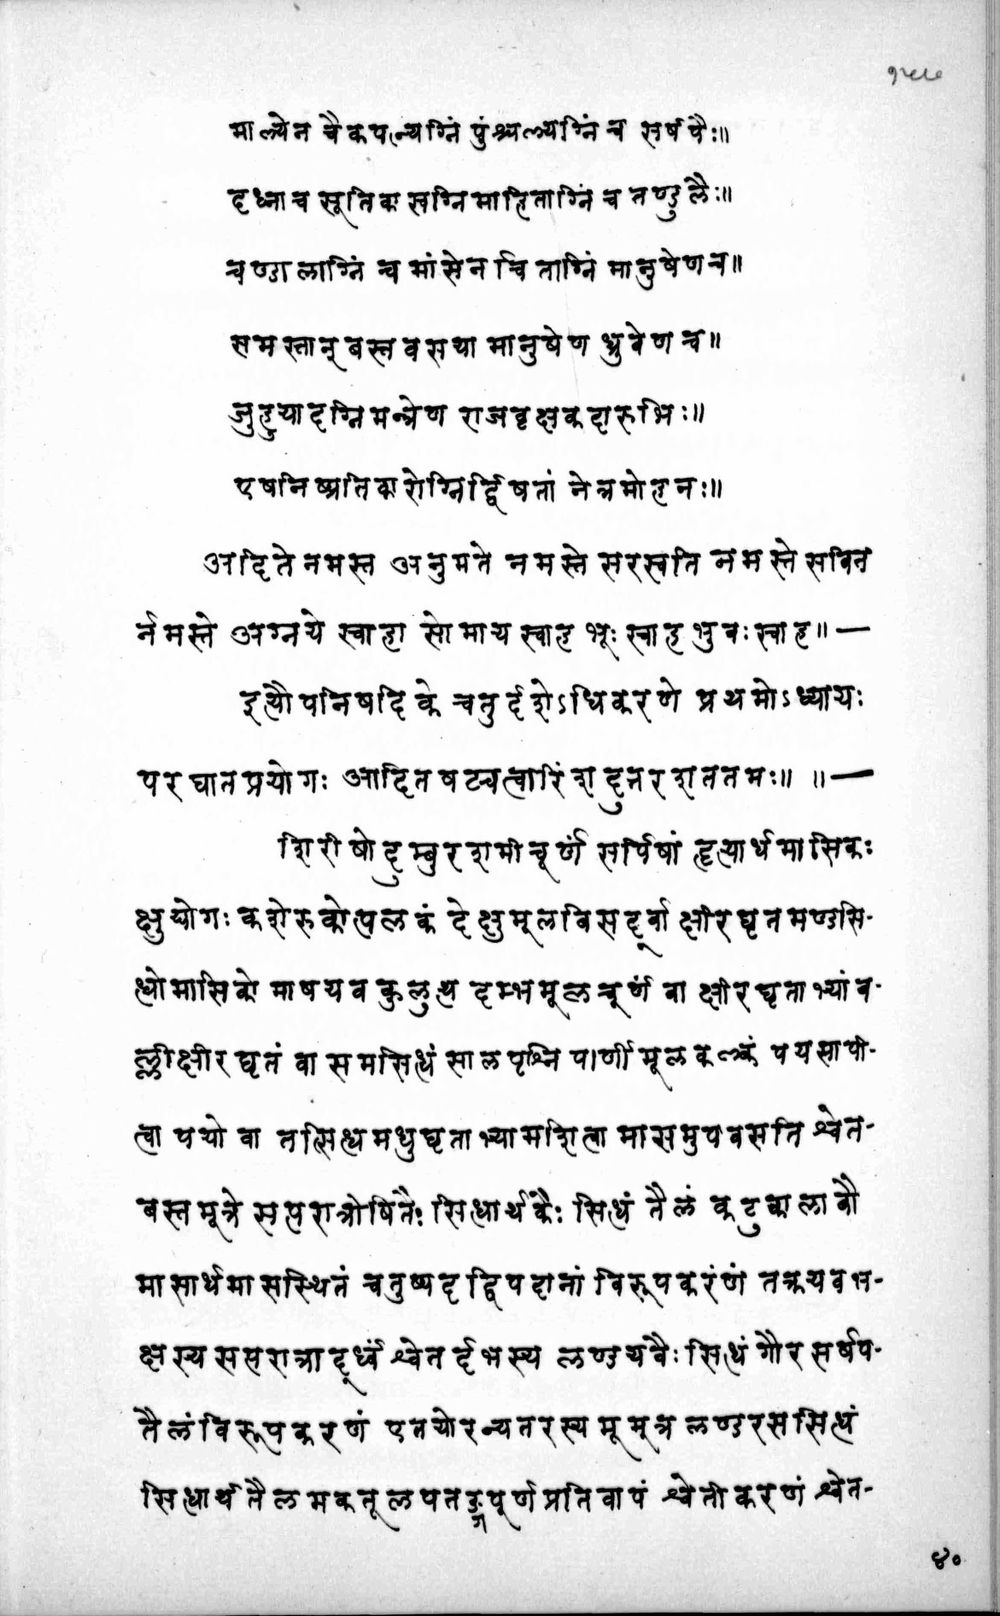 माल्येन चैकपत्न्यग्निं पुंश्चल्यग्निं च सर्षपैः॥
दध्ना च सूतिकास्वग्निमाहिताग्निं च तण्डुलैः॥
चण्डालाग्निं च मांसेन चिताग्निं मानुषेण च॥
समस्तान् बस्तवसया मानुषेण ध्रुवेण च॥
जुहुयादग्निमन्त्रेण राजवृक्षकदारुभिः॥
एष निष्प्रतिकारोग्निर्द्विषतां नेत्रमोहनः॥
अदिते नमस्त अनुमते नमस्ते सरस्वति नमस्ते सवित
र्नमस्ते अग्नये स्वाहा सोमाय स्वाह भूः स्वाह भुवः स्वाह॥ —
इत्यौपनिषदिके चतुर्दशेऽधिकरणे प्रथमोऽध्यायः
परघातप्रयोगः आदित षट्चत्वारिंशदुत्तरशततमः॥ ॥—
शिरीषोदुम्बुरशमीचूर्णं सर्पिषां हृत्यार्धमासिकः
क्षुयोगः कशेरुकोत्पलकं देक्षुमूलबिसदूर्वाक्षीरघृतमण्डसि-
त्धोमासिको माषयवकुलुथदम्भमूलचूर्णं वा क्षीरघृताभ्यां व-
ल्लीक्षीरघृतं वा समसित्धं सालपृश्निपर्णीमूलकल्कं पयसा पी-
त्वा पयो वा तत्सित्धमधुघृताभ्यामशित्वा मासमुपवसति श्वेत-
बस्तमूत्रे सप्तरात्रोषितैः सित्धार्थकैः सित्धं तैलं कटुकालाबौ
मासार्धमासस्थितं चतुष्पदद्विपदानां विरूपकरंणं तक्रयवभ-
क्षस्य सप्तरात्रादूर्ध्वं श्वेतर्दभस्य लण्डयवैः सित्धं गौरसर्षप-
तैलं विरूपकरणं एतयोरन्यतरस्य मूमूत्रलण्डरससित्धं
सित्धार्थतैलमकतूलपतङ्गपूर्णप्रतिवापं श्वेतीकरणं श्वेत-
४०